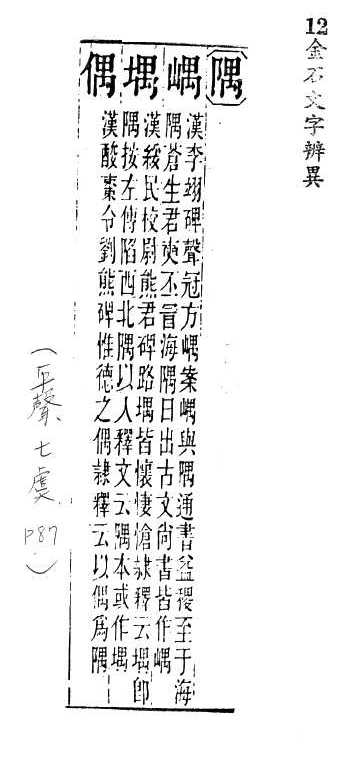 12金石文字辨異
隅
嵎
漢李翊碑聲冠方嵎案嵎與隅通書益稷至于海
隅蒼生君奭丕冒海隅日出古文尚書皆作嵎
堣
漢綏民校尉熊君碑路堣皆懷悽愴隸釋云堣即
隅按左傳陷西北隅以入釋文云隅本或作堣
偶
漢酸棗令劉熊碑惟德之偶隸釋云以偶為隅
(平聲、七虞 P87)